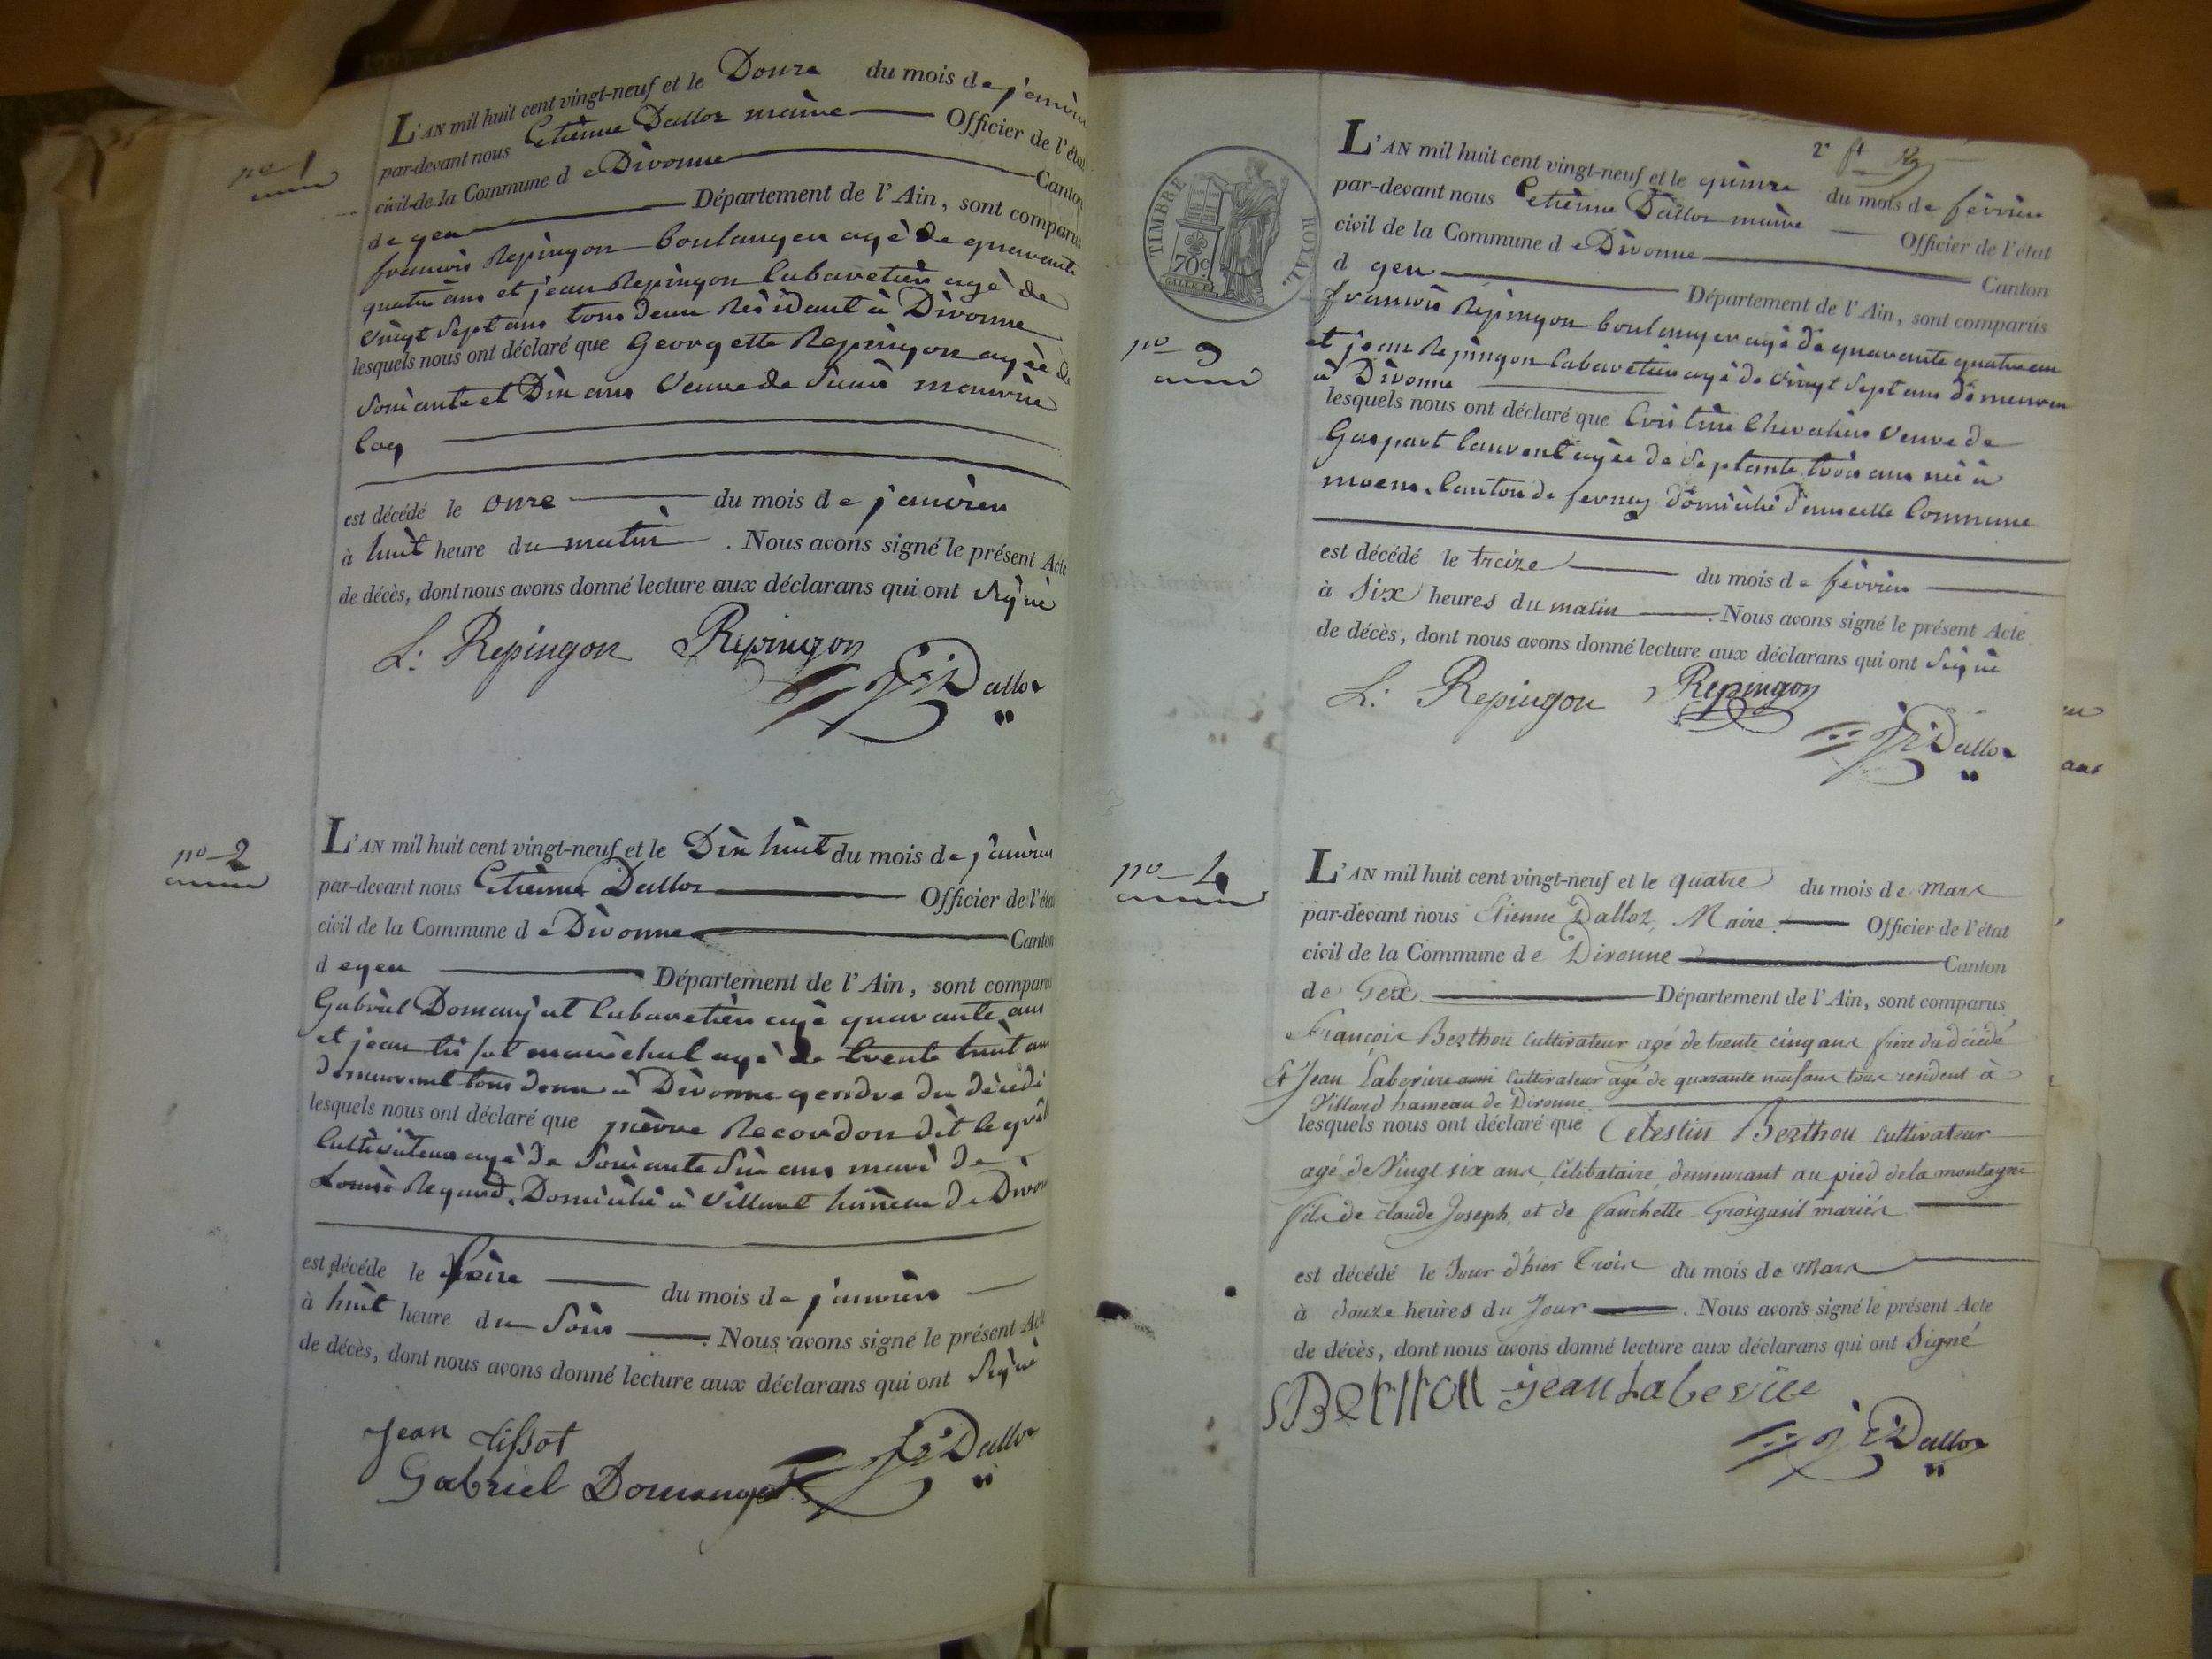 no 1
L'AN mil huit cent vingt-neuf et le Douze du mois de janvier
par-devant nous Etienne Dalloz maire Officier de l'état
civil de la Commune de Divonne Canton
de gex Département de l'Ain, sont comparus
francois Repingon boulanger agé de quarante
quatre ans et jean Repingon Cabaretier agé de
vingt Sept ans tous deux Résidant à Divonne
lesquels nous ont déclaré que Georgette Repingon agée de
Soixante et Dix ans Veuve de maurice
est décédé le onze du mois de janvier
à huit heure du matin . Nous avons signé le présent Acte
de décès, dont nous avons donné lecture aux déclarans qui ont signé
L: Repingon Repingon
Dalloz
no 2
L'AN mil huit cent vingt-neuf et le Dix huit du mois de janvier
par-devant nous Etienne Dalloz Officier de l'état
civil de la Commune de Divonne Canton
de gex Département de l'Ain, sont comparus
Gabriel Domanjat Cabaretier agé quarante ans
et jean tissot maréchal agé de trente huit ans
demeurent tous deux à Divonne gendre du décédé
lesquels nous ont déclaré que pierre Recordon dit
Cultivateur agé de Soixante Six ans mari de
Louise Regard. Domicilié à Villard hameau de Divonne
est décédé le Seize du mois de janvier
à huit heure du Soir . Nous avons signé le présent Acte
de décès, dont nous avons donné lecture aux déclarans qui ont signé
Jean tissot
Gabriel Domanjat
Dalloz
TIMBRE ROYAL.
70c
2e ft
no 3
L'AN mil huit cent vingt-neuf et le quinze du mois de février
par-devant nous Etienne Dalloz maire Officier de l'état
civil de la Commune de Divonne Canton
d gex Département de l'Ain, sont comparus
francois Repingon boulanger agé de quarante quatre ans
et jean Repingon Cabaretier agé de vingt Sept ans demeurant
à Divonne
lesquels nous ont déclaré que Cristine Chevalier Veuve de
Gaspart Laurent agée de Septante trois ans né à
moens. Canton de ferney Domicilié Dans cette Commune
est décédé le treize du mois de février
à Six heures du matin . Nous avons signé le présent Acte
de décès, dont nous avons donné lecture aux déclarans qui ont signé
L: Repingon Repingon
Dalloz
no 4
L'AN mil huit cent vingt-neuf et le quatre du mois de Mars
par-devant nous Etienne Dalloz, Maire. Officier de l'état
civil de la Commune de Divonne Canton
de Gex Département de l'Ain, sont comparus
François Berthou Cultivateur agé de trente cinq ans frère du décédé
Et Jean Laberiere aussi Cultivateur agé de quarante neuf ans tous resident à
Villard hameau de Divonne.
lesquels nous ont déclaré que Celestin Berthou Cultivateur
agé de Vingt six ans, Célibataire, demeurant au pied de la montagne
fils de Claude Joseph, et de fanchette Grosgasil mariés
est décédé le Jour d'hier Trois du mois de Mars
à douze heures du Jour . Nous avons signé le présent Acte
de décès, dont nous avons donné lecture aux déclarans qui ont Signé
Berthou jean Laberiere
Dalloz